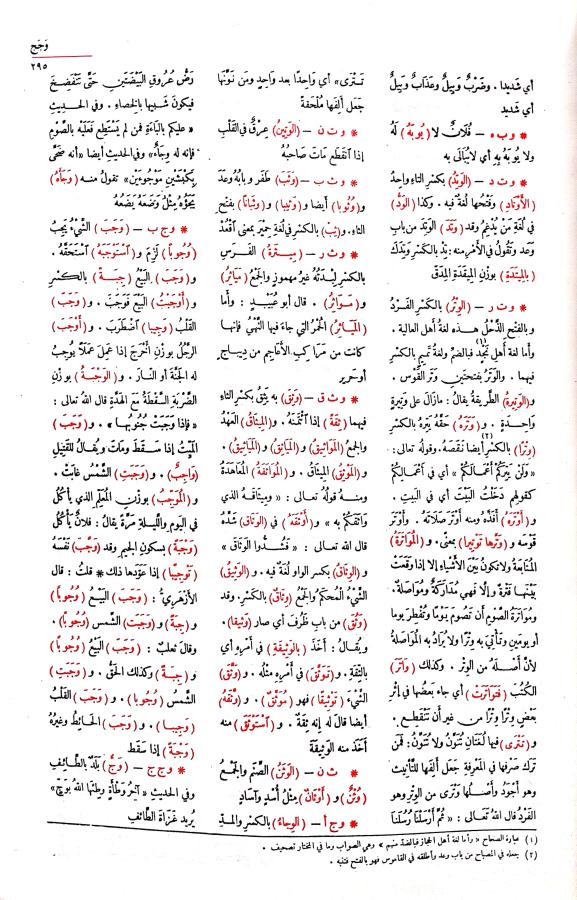 وَجَج
٢٩٥
أي شديدا. وضَرْبٌ وَبِيلٌ وعَذَابٌ وَبِيلٌ
أي شديد
* و ب ه – فُلَانٌ لا (يُوبَهُ) لَهُ
ولا يُوبَهُ بِهِ أي لا يُبَالَى به
* و ت د – (الوَتِدُ) بكسر التاء واحِدُ
(الأَوْتَادِ) وفتحُها لُغَةٌ فيه. وكذا (الوَدُّ)
في لُغَةِ مَنْ يُدْغِمُ وقد (وَتَدَ) الوَتِدَ من باب
وَعَد وتَقُول في الأَمْرِ منه: تِدْ بالكسر وَتِدَكَ
(بالمِيتَدَةِ) بوزن المِيقَدَةِ المِدَقّ
* و ت ر – (الوِتْرُ) بالكسر الفَرْدُ
وبالفتح الذَّحْلُ هذه لُغَةُ أهلِ العالية.
وأما لغةُ أهل نَجْدٍ(١) فبالضم ولُغَةُ تَمِيمٍ بالكسر
فيهما. والوَتَرُ بفتحتين وَتَرُ القَوْس.
و (الوَتِيرَةُ) الطَّرِيقَةُ يقالُ: مازالَ على وَتِيرَةٍ
واحِدَةٍ. و (وَتَرَهُ) حَقَّهُ يَتِرُهُ بالكسر
(وِتْرًا)(٢) بالكسر أيضا نَقَصَهُ. وقولُه تعالى:
« وَلَنْ يَتِرَكُمْ أَعْمَالَكُمْ » أي في أَعْمَالِكُمْ
كقولهم دَخَلْتُ البَيْتَ أي في البَيْتِ.
و (أَوْتَرَهُ) أَفَذَّهُ ومنه أَوْتَرَ صَلَاتَهُ. وأَوْتَرَ
قَوْسَه و (وَتَّرَها تَوْتِيرًا) بمعنًى. و (المُوَاتَرَةُ)
المُتَابَعَةُ ولا تكون بَيْنَ الأَشْيَاءِ إلا إذا وَقَعَتْ
بَيْنَها فَتْرَةٌ وإلّا فهي مُدَارَكَةٌ ومُوَاصَلَةٌ.
ومُوَاتَرَةُ الصَّوْمِ أن تَصُومَ يَوْمًا وتُفْطِرَ يوما
أو يَوْمَين وتَأْتِيَ بِهِ وِتْرًا ولا يُرَادُ به المُوَاصَلَةُ
لأنّ أَصْلَه مِن الوِتْر. وكذلك (وَاتَرَ)
الكُتُبَ (فَتَوَاتَرَتْ) أي جاء بَعْضُها في إثْرِ
بَعْضٍ وِتْرًا وِتْرًا من غير أن تَنْقَطِع.
و (تَتْرَى) فيها لُغَتَانِ تُنَوَّنُ ولا تُنَوَّنُ: فَمَنْ
تَرَكَ صَرْفَها في المَعْرِفَةِ جَعَلَ أَلِفَها للتَّأْنِيثِ
وهو أَجْوَدُ وأَصْلُها وَتْرَى من الوِتْرِ وهو
الفَرْدُ قال اللهُ تعالى: « ثُمَّ أَرْسَلْنَا رُسُلَنَا
تَتْرَى » أي وَاحِدًا بعد واحِدٍ ومَن نَوَّنَها
جَعَل أَلِفَها مُلْحَقَةً
* و ت ن – (الوَتِينُ) عِرْقٌ في القَلْبِ
إذا انْقَطَع مَاتَ صَاحِبُهُ
* و ث ب – (وَثَبَ) طَفَر وبابُه وَعَد
و (وُثُوبًا) أيضا و (وَثِيبا) و (وَثَبَانًا) بفتح
الثاء. و(ثِبْ) بالكسر في لُغَةِ حِمْيَر بمعنى اقْعُدْ
* و ث ر – (مِيثَرَةُ) الفَرَسِ
بالكسر لِبْدَتُهُ غيرُ مهموزٍ والجَمْعُ (مَيَاثِرُ)
و (مَوَاثِرُ). قال أبو عُبَيْدٍ: وأما
(المَيَاثِرُ) الحُمْرُ التي جاء فيها النَّهْيُ فإنها
كانت من مَرَاكِبِ الأَعَاجِمِ من دِيبَاجٍ
أو حَرِير
* و ث ق – (وَثِقَ) به يَثِقُ بكسر الثاء
فيهما (ثِقَةً) إذا ائْتَمَنَهُ. و (المِيثَاقُ) العَهْدُ
والجمع (المَوَاثِيقُ) و (المَيَاثِقُ) و (المَيَاثِيقُ).
و (المَوْثِقُ) المِيثَاق. و (المُوَاثَقَةُ) المُعَاهَدَةُ
ومنه قولُه تعالى: « ومِيثَاقَهُ الذي
وَاثَقَكُمْ بِهِ » و (أَوْثَقَهُ) في (الوَثَاقِ) شَدَّه
قال الله تعالى: « فَشُدُّوا الوَثَاقَ »
و (الوِثَاقُ) بكسر الواو لُغَةٌ فيه. و (الوَثِيقُ)
الشَّيْءُ المُحْكَمُ والجَمْعُ (وِثَاقٌ) بالكسر. وقد
(وَثُقَ) من باب ظَرُفَ أي صار (وَثِيقًا).
ويُقَالُ: أَخَذَ (بالوَثِيقَةِ) في أَمْرِهِ أي
بالثِّقَةِ. و (تَوَثَّقَ) في أَمْرِهِ مِثْلُه. و (وَثَّقَ)
الشَّيْءَ (تَوْثِيقًا) فهو (مُوَثَّقٌ). و (وَثَّقَهُ)
أيضا قال له إِنه ثِقَةٌ. و (اسْتَوْثَقَ) منه
أَخَذَ منه الوَثِيقَةَ
* و ث ن – (الوَثَنُ) الصَّنَمُ والجَمْعُ
(وُثْنٌ) و (أَوْثَانٌ) مِثْلُ أُسْدٍ وآسَادٍ
* و ج أ – (الوِجَاءُ) بالكسر والمدّ
رَضُّ عُرُوقِ البَيْضَتَينِ حَتَّى تَنْفَضِخَ
فيكون شَبِيهًا بالخِصَاء. وفي الحديث
« عليكم بالبَاءَةِ فمن لم يَسْتَطِعْ فَعَلَيْه بالصَّوْمِ
فإنه له وِجَاءٌ » وفي الحديث أيضا « أنه ضَحَّى
بِكَبْشَيْنِ مَوْجُوءَيْنِ » تَقُولُ منه (وَجَأَهُ)
يَجَؤُهُ مِثْلُ وَضَعَهُ يَضَعُهُ
* و ج ب – (وَجَبَ) الشَّيْءُ يَجِبُ
(وُجُوبًا) لَزِمَ و (اسْتَوْجَبَهُ) اسْتَحَقَّهُ.
و (وَجَبَ) البَيْعُ (جِبَةً) بالكَسْرِ
و (أَوْجَبْتُ) البَيْعَ فَوَجَبَ. و (وَجَبَ)
القَلْبُ (وَجِيبًا) اضْطَرَبَ. و (أَوْجَبَ)
الرَّجُلُ بوزن أَخْرَجَ إذا عَمِلَ عَمَلًا يُوجِبُ
له الجَنَّةَ أو النارَ. و (الوَجْبَةُ) بوزن
الضَّرْبَةِ السَّقْطَةُ مَعَ الهَدَّةِ قال اللهُ تعالى:
« فإذا وَجَبَتْ جُنُوبُها ». و (وَجَبَ)
المَيِّتُ إذا سَقَطَ ومَاتَ ويُقَالُ للقَتِيلِ
(وَاجِبٌ). و (وَجَبَتِ) الشَّمْسُ غَابَتْ.
و (المُوَجِّبُ) بوزن المُعَلِّمِ الذي يأكُلُ
في اليوم والليلةِ مَرَّةً يقال: فُلَانٌ يأكُلُ
(وَجْبَةً) بسكون الجيم وقد (وَجَّبَ) نَفْسَهُ
(تَوْجِيبًا) إذا عَوَّدَها ذلك * قلتُ: قال
الأَزْهَرِيُّ: (وَجَبَ) البَيْعُ (وُجُوبًا)
و (جِبَةً) و (وَجَبَتِ) الشَّمْسُ (وُجُوبًا).
وقال ثعلبٌ: (وَجَبَ) البَيْعُ (وُجُوبًا)
و (جِبَةً) وكذلك الحَقُّ. و (وَجَبَتِ)
الشَّمْسُ (وُجُوبا). و (وَجَبَ) القَلْبُ
(وَجِيبا). و (وَجَبَ) الحَائِطُ وغيرُهُ
(وَجْبَةً) إذا سَقَط
* و ج ج – (وَجٌّ) بَلَدٌ بالطَّائِفِ
وفي الحديثِ « آخِرُ وَطْأَةٍ وَطِئَها اللهُ بِوَجٍّ »
يُرِيد غَزَاةَ الطَّائِفِ
(١) عبارة الصحاح « وأما لغة أهل الحجاز فبالضد منهم » وهي الصواب وما في المختار تصحيف.
(٢) جعله في المصباح من باب وعد وأطلقه في القاموس فهو بالفتح فتنبه.